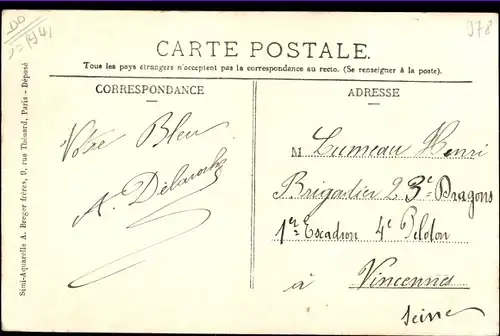 978
CARTE POSTALE.
Tous les pays étrangers n'acceptent pas la correspondance au recto. (Se renseigner à la poste).
CORRESPONDANCE
Votre Bleu
A. Délaroche
ADRESSE
M Lumeau Henri
Brigadier 23e Dragons
1er Escadron 4e Peloton
à Vincennes
Seine
Simi-Aquarelle A. Breger frères, 9, rue Thénard, Paris - Déposé